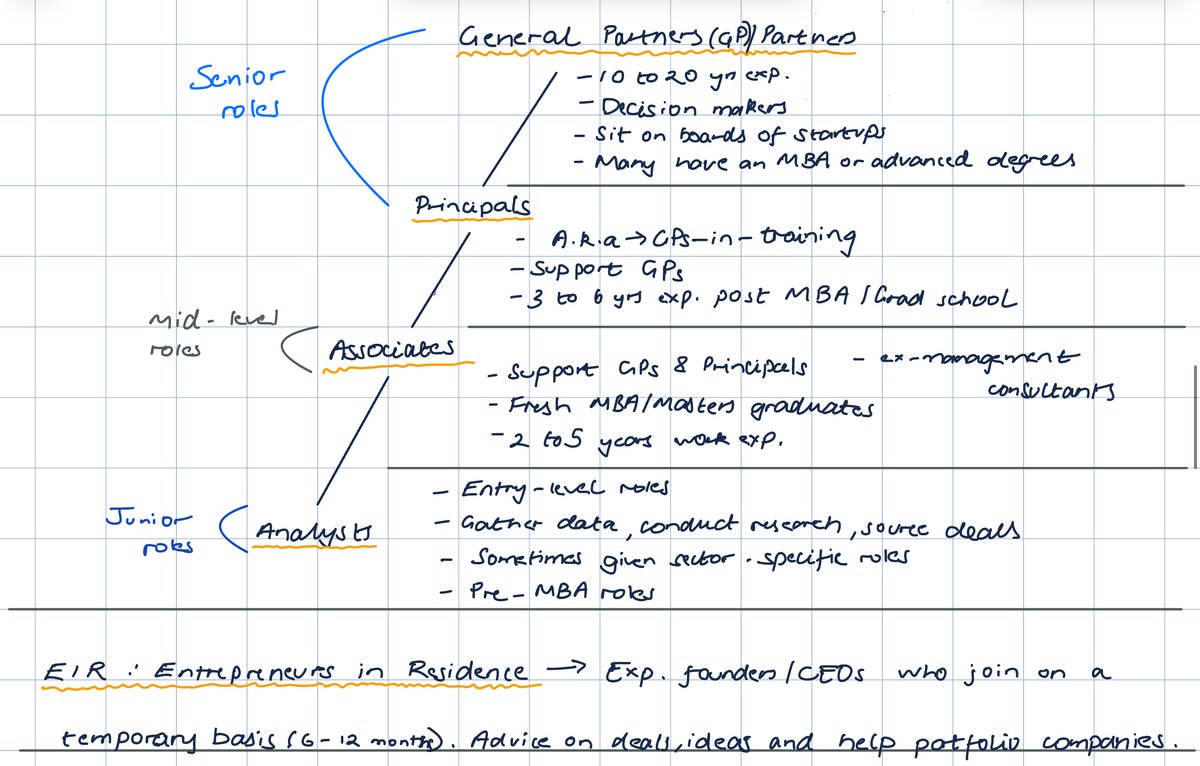 General Partners (GP)/Partners
Senior
roles
- 10 to 20 yr exp.
- Decision makers
- Sit on boards of startups
- Many have an MBA or advanced degrees
Principals
- A.k.a → GPs-in-training
- Support GPs
- 3 to 6 yrs exp. post MBA/Grad school
Mid-level
roles
Associates
- Support GPs & Principals
- Fresh MBA/Masters graduates
- 2 to 5 years work exp.
- ex-management
consultants
Junior
roles
Analysts
- Entry-level roles
- Gather data, conduct research, source deals
- Sometimes given sector-specific roles
- Pre-MBA roles
EIR : Entrepreneurs in Residence → Exp. founders/CEOs who join on a
temporary basis (6-12 months). Advice on deals, ideas and help potfolio companies.